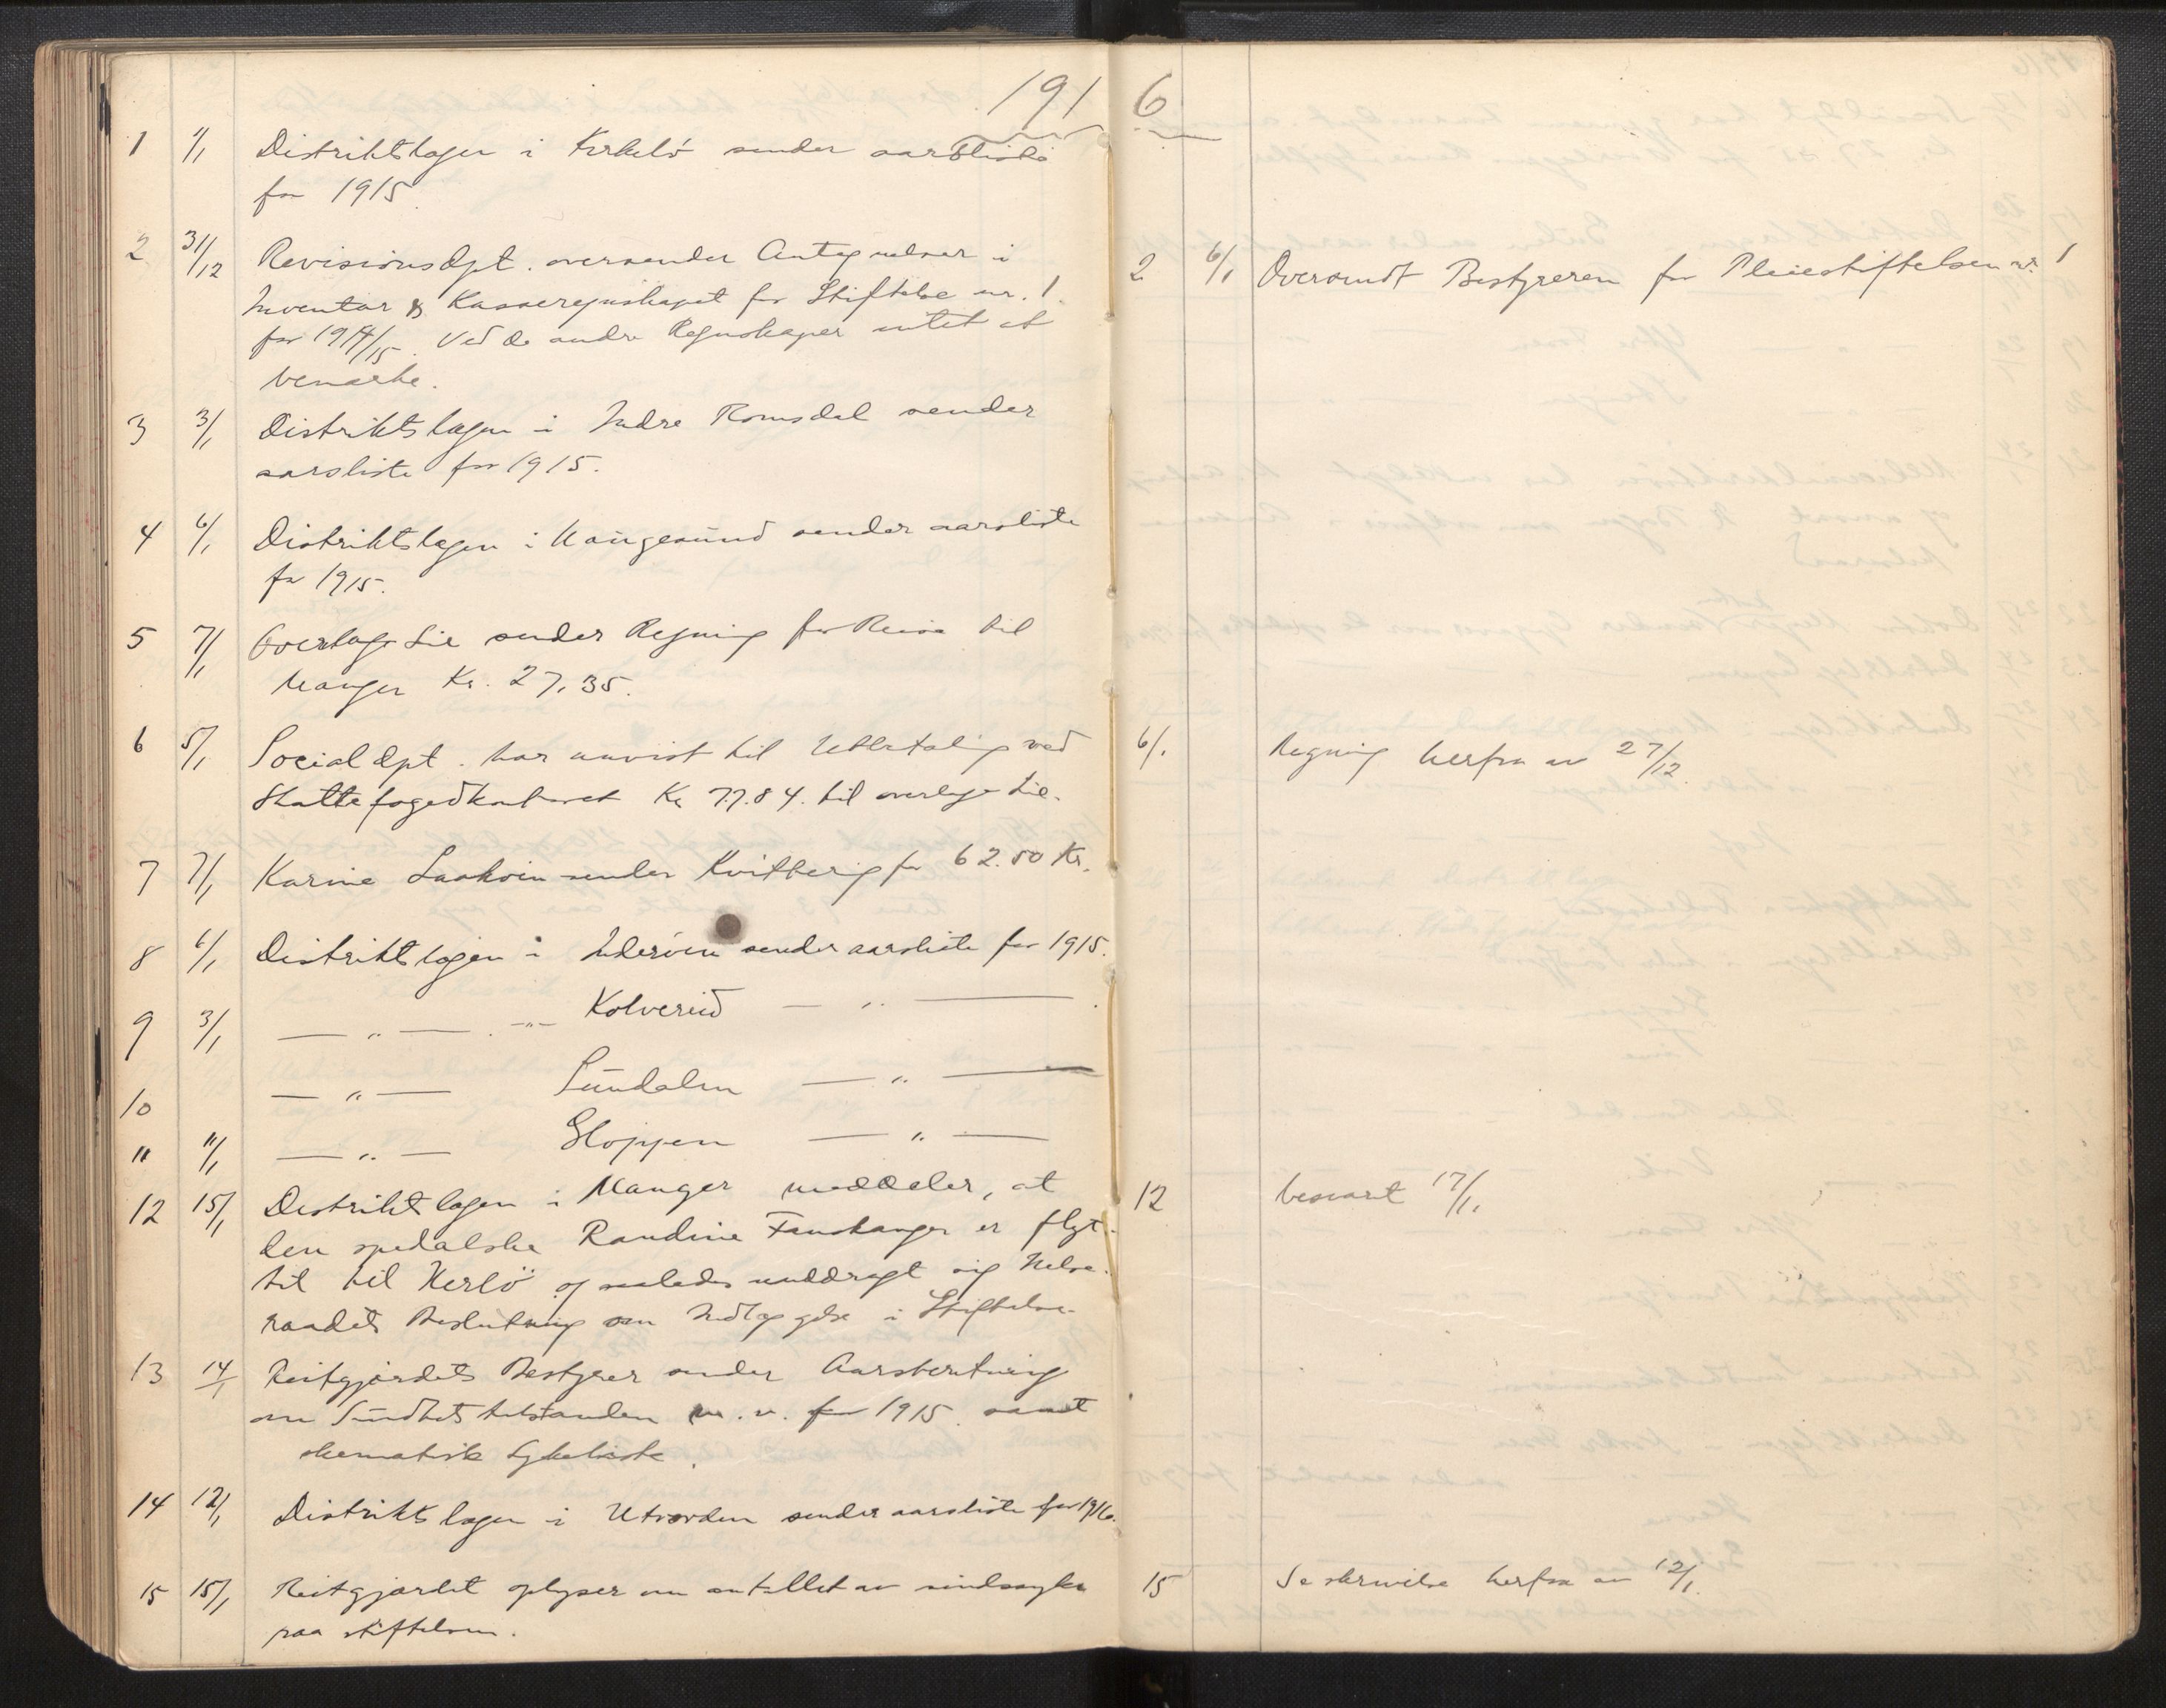 1916
1 1/1 Distriktslægen i Kirkelö sender aarsliste
for 1915.
2 31/12 Revisionsdpt. oversender Antegnelser i
Inventar & Kasseregnskapet for Stiftelse nr. 1.
for 1914/15. Ved de andre Regnskaper intet at
bemærke.
3 3/1 Distriktslægen i Indre Romsdal sender
aarsliste for 1915.
4 6/1 Distriktslægen i Haugesund sender aarsliste
for 1915.
5 7/1 Overlæge Lie sender Regning for Reise til
Manger Kr. 27,35.
6 5/1 Socialdpt. har anvist til Utbetaling ved
Skattefogedkontoret Kr 77.84. til overlæge Lie.
7 7/1 Karine sender Kvittering for 62.50 Kr.
8 6/1 Distriktslægen i Inderöen sender aarsliste for 1915.
9 3/1 — " — . —"— Kolvereid — " —
10 — " — Sundalen — " —
11 11/1 — " — Gloppen — " —
12 15/1 Distriktslægen i Manger meddeler, at
den spedalske Randine Fanskanger er flyt-
tet til Herlö og saaledes unddragt sig Helse-
raadets Beslutning om Indlæggelse i Stiftelse.
13 14/1 Reitgjærdets Bestyrer sender Aarsberetning
om Sundhetstilstanden m. v. for 1915 samt
skematisk Sykeliste.
14 12/1 Distriktslægen i Utvorden sender aarsliste for 1916.
15 15/1 Reitgjærdet oplyser om antallet av sindssyke
paa stiftelsen.
2 6/1 Oversendt Bestyreren for Pleiestiftelsen nr. 1
6/1 Regning herfra av 27/12.
12 besvart 17/1.
15 Se skrivelse herfra av 12/1.